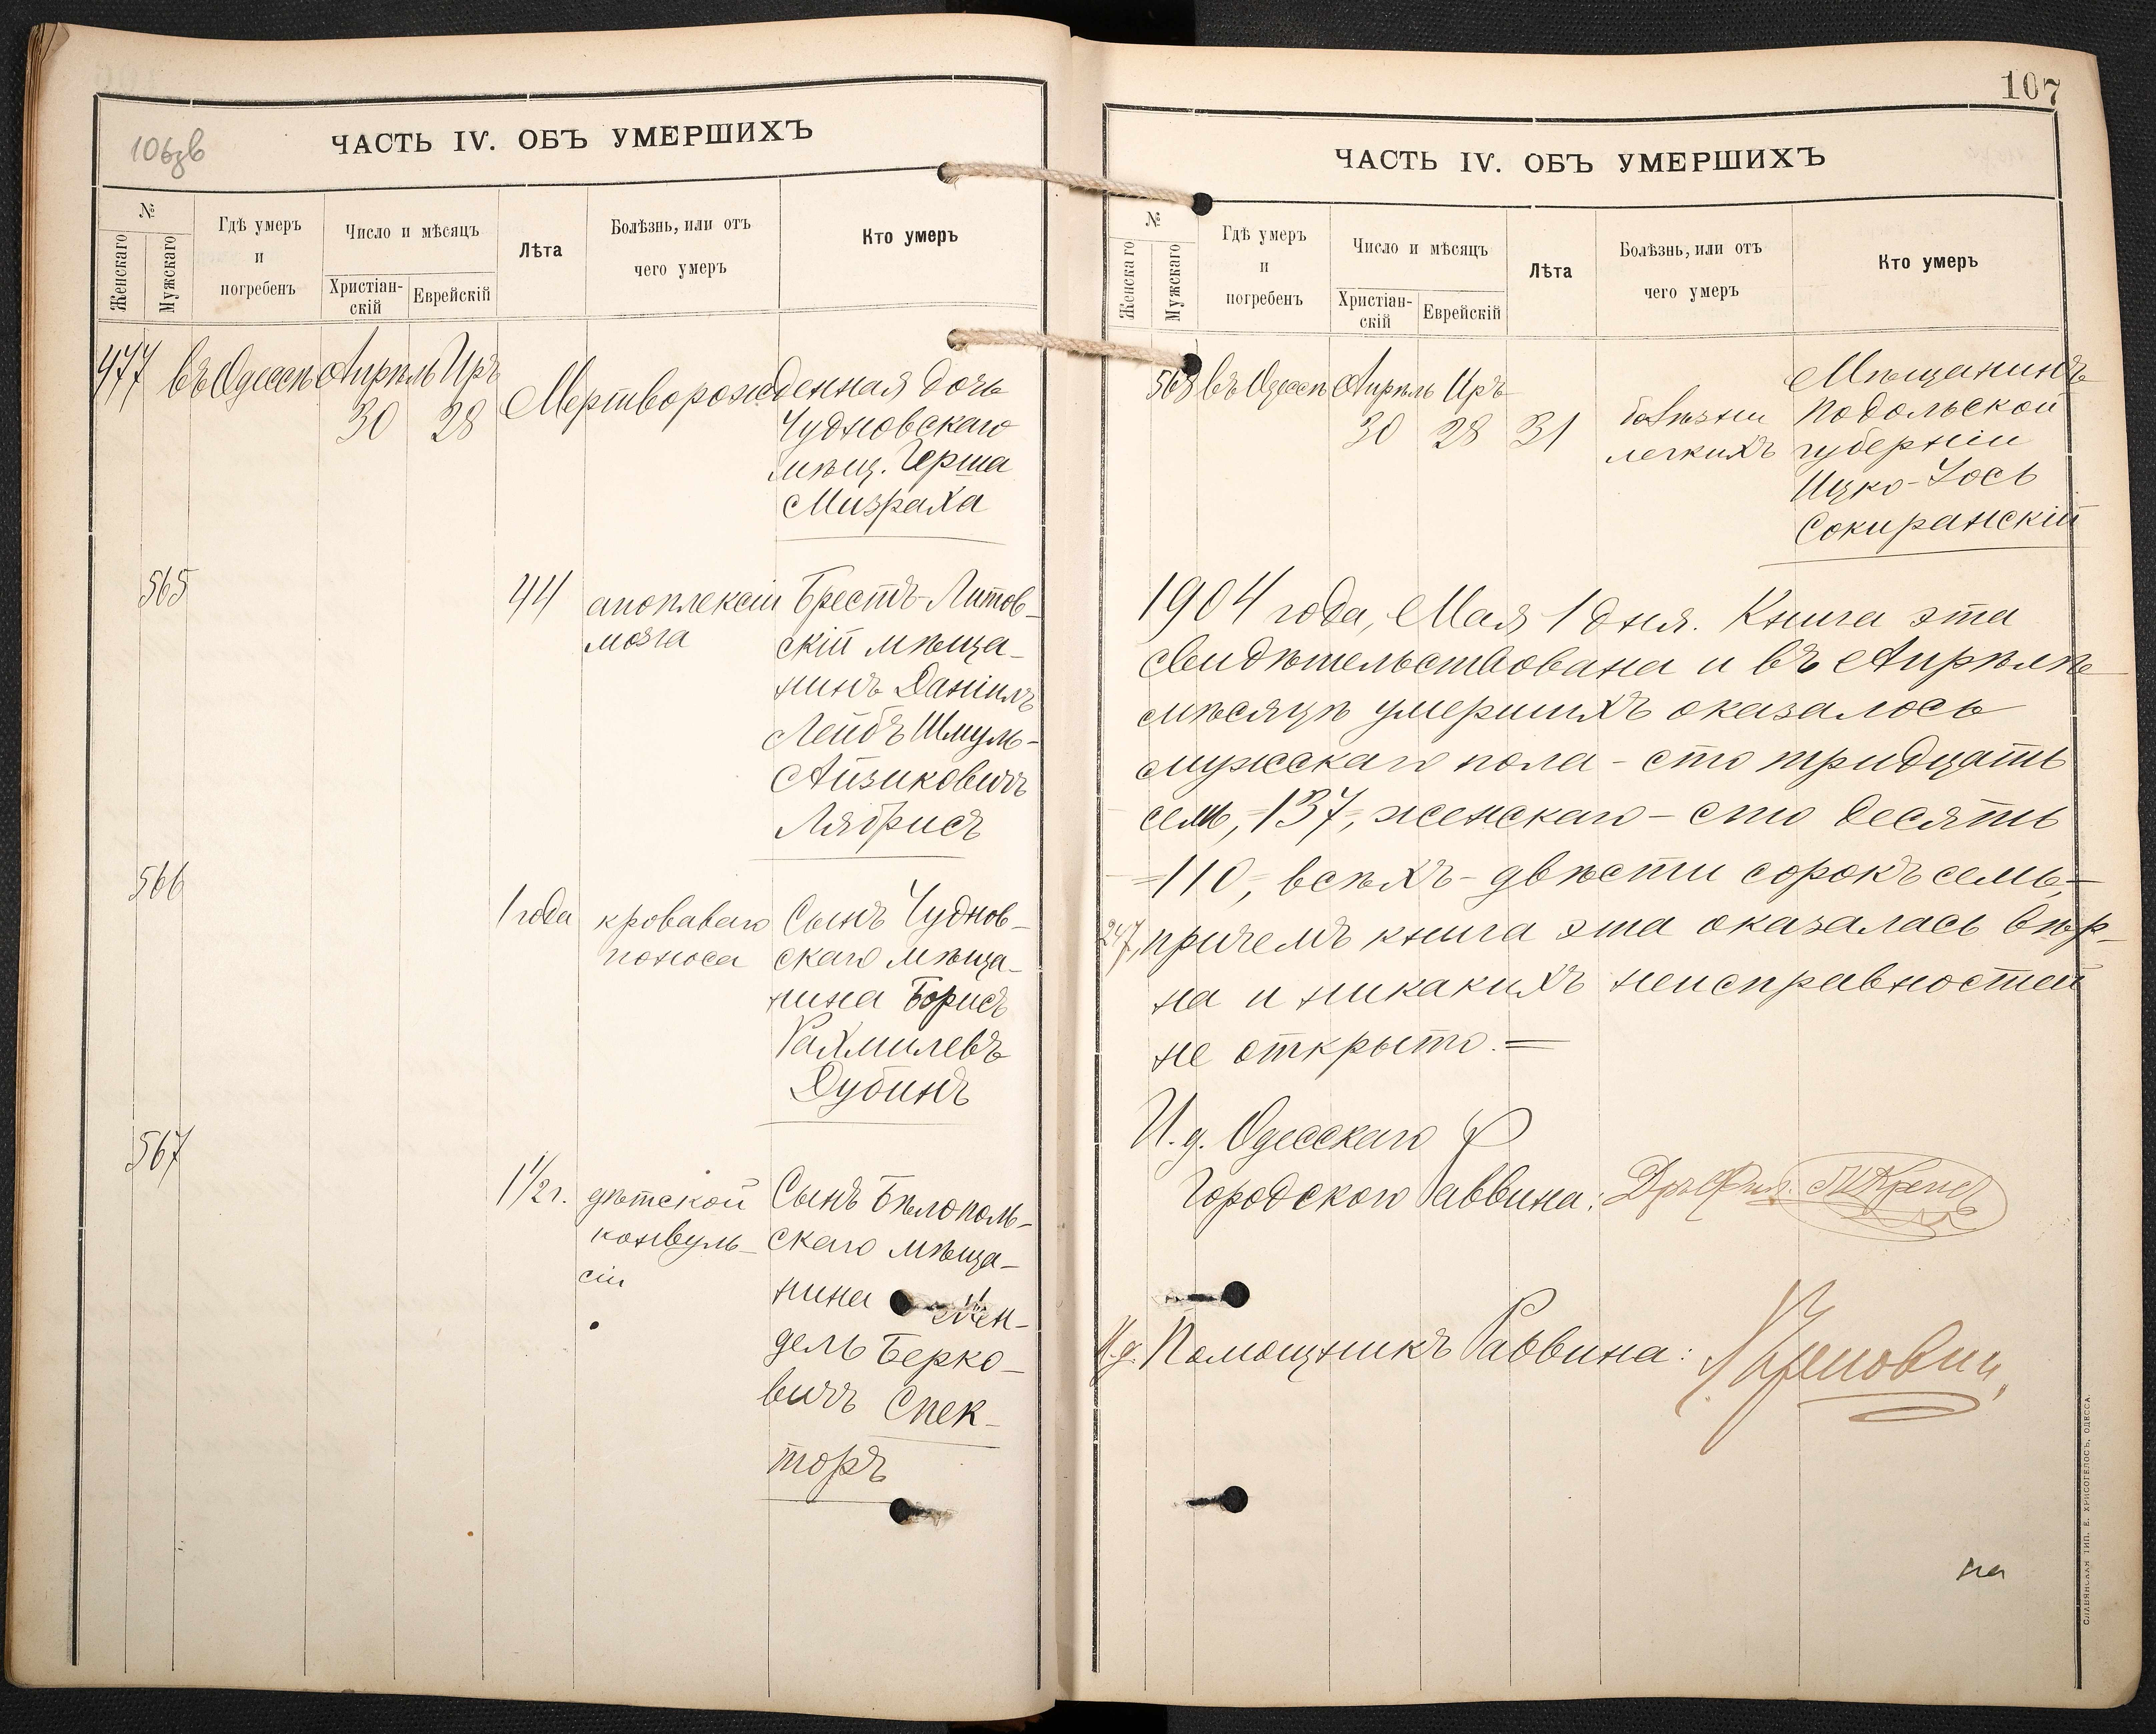 106зв
ЧАСТЬ IV. ОБЪ УМЕРШИХЪ
№
Женскаго
Мужскаго
Гдѣ умеръ
и
погребенъ
Число и мѣсяцъ
Христіан-
скій
Еврейскій
Лѣта
Болѣзнь, или отъ
чего умеръ
Кто умеръ
477 въ Одессѣ Апрѣль Иръ
30 28
Мертворожденная дочь
Чудновскаго
мѣщ. Герша
Мизраха
565
44
апоплексіи
мозга
Брестъ-Литов-
скій мѣща-
нинъ Даніилъ
Лейбъ Шмуль-
Айзиковичъ
Лябрисъ
566
1 года
кроваваго
поноса
Сынъ Чуднов-
скаго мѣща-
нина Борисъ
Рахмилевъ
Дубинъ
567
1 1/2 г.
дѣтской
конвуль-
сіи
Сынъ Бѣлополь-
скаго мѣща-
нина Мен-
дель Берко-
вичъ Спек-
торъ
107
ЧАСТЬ IV. ОБЪ УМЕРШИХЪ
№
Женскаго
Мужскаго
Гдѣ умеръ
и
погребенъ
Число и мѣсяцъ
Христіан-
скій
Еврейскій
Лѣта
Болѣзнь, или отъ
чего умеръ
Кто умеръ
568 въ Одессѣ Апрѣль Иръ
30 28 31
болѣзни
легкихъ
Мѣщанинъ
Подольской
губерніи
Ицко-Іось
Сокиранскій
1904 года, Мая 1 дня. Книга эта
свидѣтельствована и въ Апрѣлѣ
мѣсяцѣ умершихъ оказалось
мужскаго пола - сто тридцать
семь, -137-, женскаго - сто десять
-110-, всѣхъ - двѣсти сорокъ семь,-
247, причемъ книга эта оказалась вѣр-
на и никакихъ неисправностей
не открыто. =
И. д. Одесскаго
Городского Раввина:
И. д. Помощникъ Раввина:
на
СЛАВЯНСКАЯ ТИП. Е. ХРИСОГЕЛОСЪ, ОДЕССА.